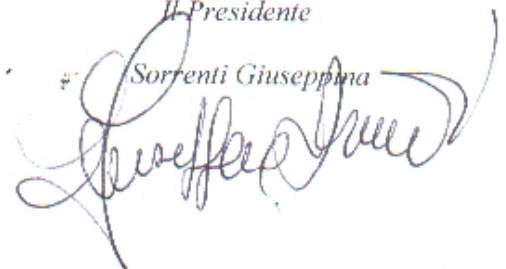 Il Presidente
Sorrenti Giuseppina